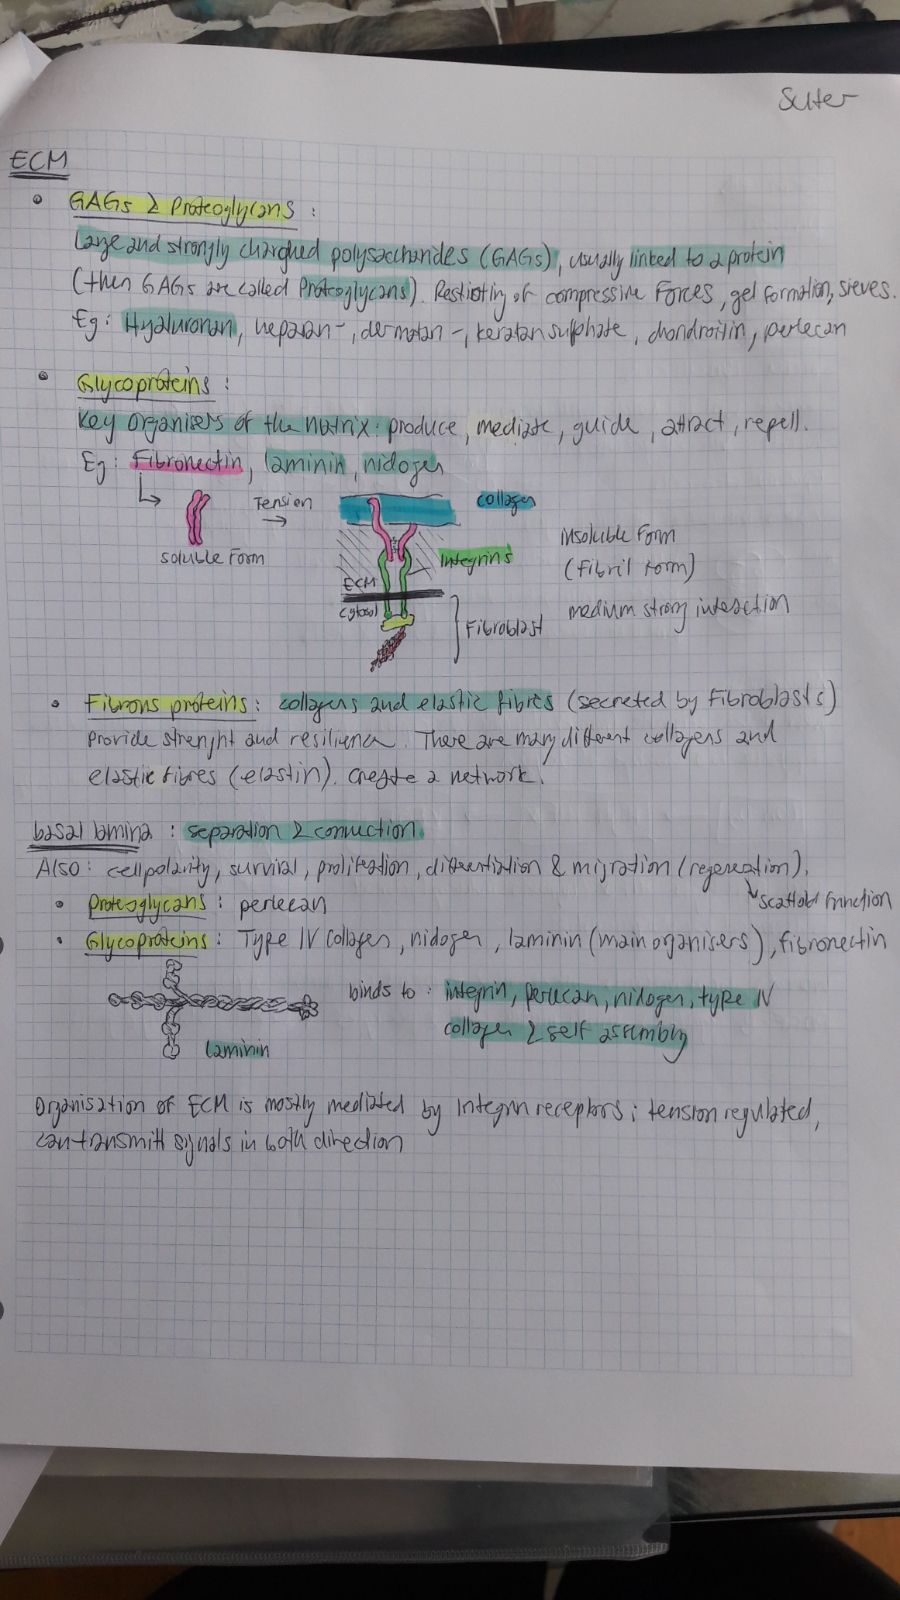 Suter
ECM
• GAGs & Proteoglycans :
Large and strongly charghed polysaccharides (GAGs), usually linked to a protein
(then GAGs are called Proteoglycans). of compressive Forces, gel formation, sieves.
Eg: Hyaluronan, heparan-, dermatan-, keratan sulphate, chondroitin, perlecan
• Glycoproteins :
Key organisers of the matrix: produce, mediate, guide, attract, repell.
Eg: Fibronectin, laminin, nidogen
Tension
collagen
soluble Form
Integrins
insoluble Form
(fibril form)
ECM
cytosol
Fibroblast
medium strong interaction
• Fibrous proteins: collagens and elastic fibres (secreted by Fibroblasts)
Provide strenght and resilience. There are many different collagens and
elastic fibres (elastin). create a network.
basal lamina : separation & connection.
Also: cell polarity, survival, proliferation, differentiation & migration (regeneration).
scaffold function
• Proteoglycans : perlecan
• Glycoproteins : Type IV collagen, nidogen, laminin (main organisers), fibronectin
binds to : integrin, perlecan, nidogen, type IV
collagen & self assembly
laminin
Organisation of ECM is mostly mediated by Integrin receptors: tension regulated,
can transmitt signals in both direction